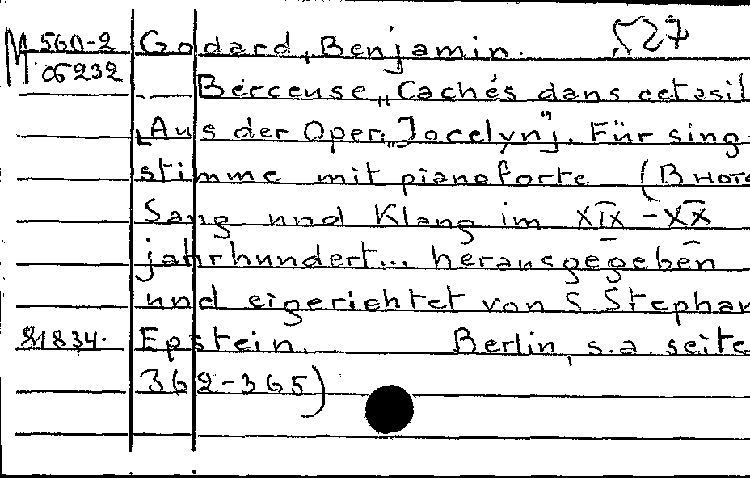 M 560-2 Godard, Benjamin. 527
06232
Berceuse „Cachés dans cet asil
[Aus der Oper „Jocelyn"]. Für sing
stimme mit pianoforte (В ноте
Sang und Klang im XIX-XX
jahrhundert... herausgegeben
und eigerichtet von S Stephan
81834. Epstein. Berlin, s.a seite
362-365)